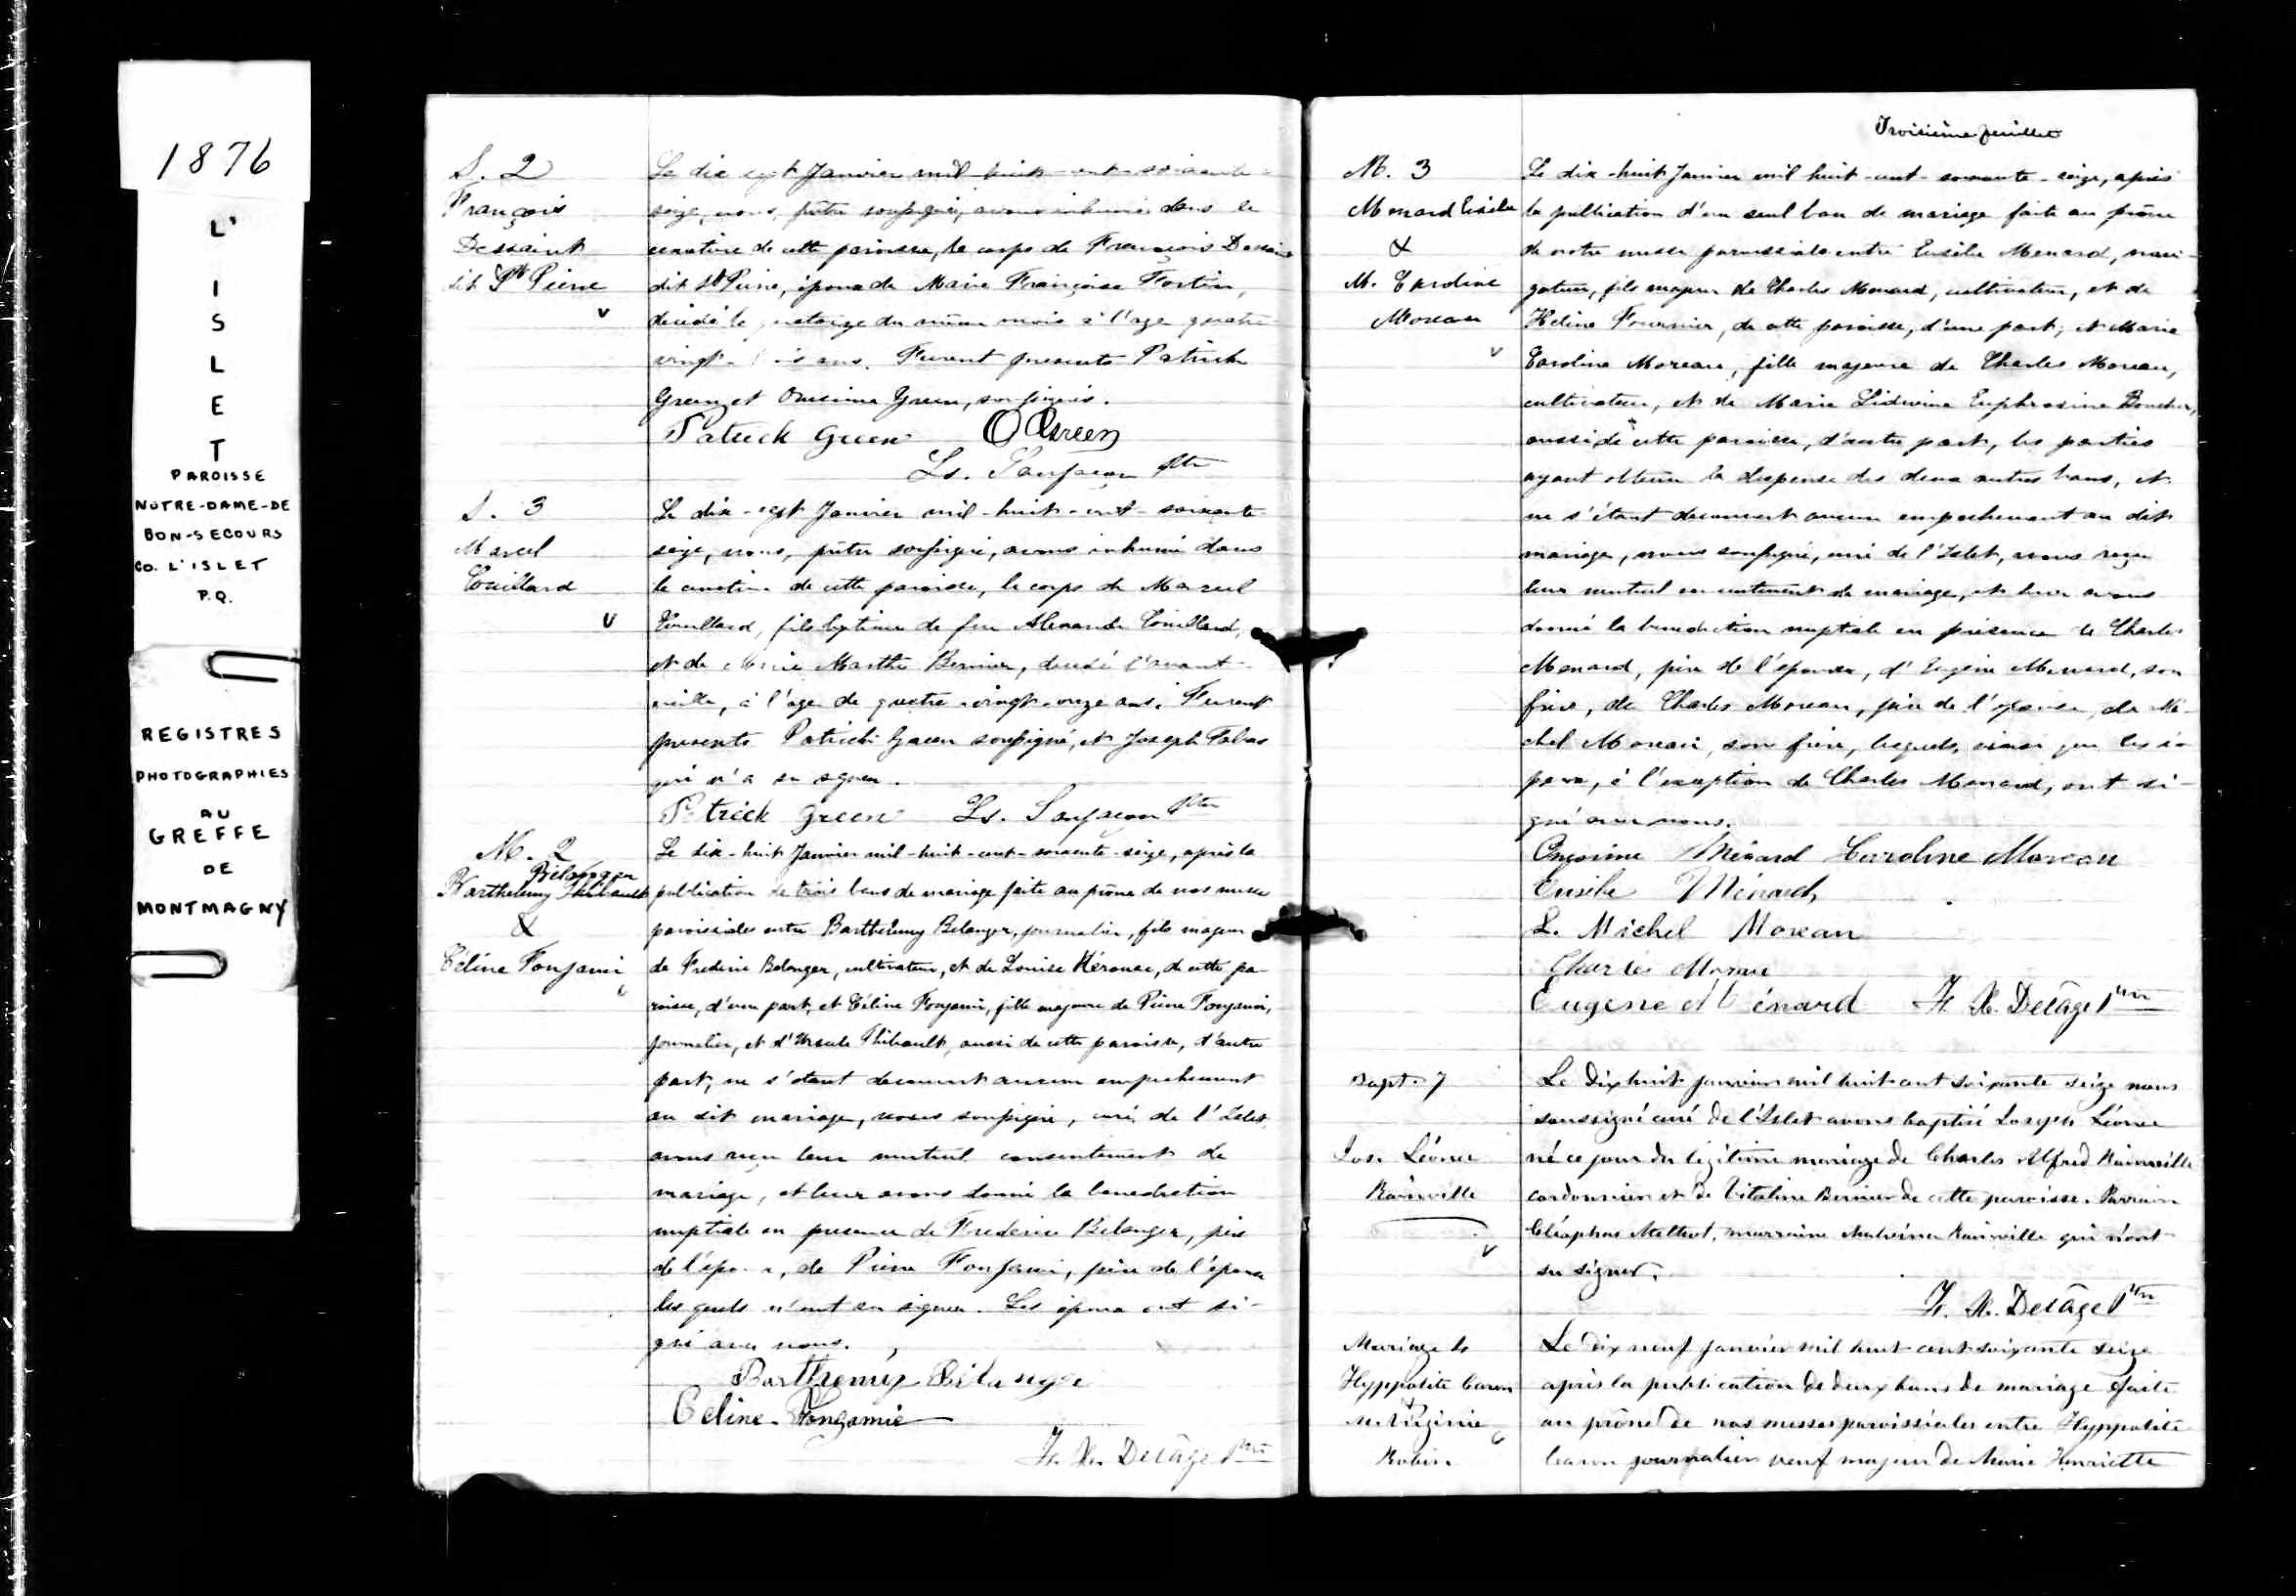 1876
L'
I
S
L
E
T
PAROISSE
NOTRE-DAME-DE
BON-SECOURS
CO. L'ISLET
P.Q.
REGISTRES
PHOTOGRAPHIES
AU
GREFFE
DE
MONTMAGNY
S. 2
François
Dessaint
dit St Pierre
Le dix sept Janvier mil huit-cent-soixante-
seize, nous, prêtre soussigné, avons inhumé dans le
cimetière de cette paroisse, le corps de François Dessaint
dit St Pierre, époux de Marie Françoise Fortin,
décédé le quatorze du même mois à l'age quatre
vingt- ans. Furent presents Patrick
Green et Onesime Green, soussignés.
Patrick Green O Green
Ls. Sanfaçon Ptre
S. 3
Marcel
Couillard
Le dix-sept Janvier mil-huit-cent-soixante-
seize, nous, prêtre soussigné, avons inhumé dans
le cimetière de cette paroisse, le corps de Marcel
Couillard, fils legitime de feu Alexandre Couillard,
et de Marie Marthe Bernier, decédé l'avant-
veille, à l'age de quatre-vingt-onze ans. Furent
presents Patrick Green soussigné, et Joseph
qui n'a su signer.
Patrick Green Ls. Sanfaçon Ptre
M. 2
Bélanger
Barthelemy Thibault
&
Céline Fonjamie
Le dix-huit Janvier mil-huit-cent-soixante-seize, après la
publication de trois bans de mariage faite au prône de nos messes
paroissiales entre Barthelemy Belanger, journalier, fils majeur
de Frederic Belanger, cultivateur, et de Louise Kérouac, de cette pa-
roisse, d'une part, et Céline Fonjamie, fille majeure de Pierre Fonjamie,
journalier, et d'Ursule Thibault, aussi de cette paroisse, d'autre
part, ne s'étant decouvert aucun empechement
au dit mariage, nous soussigné, curé de l'Islet
avons reçu leur mutuel consentement de
mariage, et leur avons donné la benediction
nuptiale en presence de Frederic Belanger, père
de l'époux, de Pierre Fonjamie, père de l'épouse
lesquels n'ont su signer. Les époux ont si-
gné avec nous.
Barthemiy Bélanger
Celine Fongamie
F. X. Delâge Ptre
Troisième feuillet
M. 3
Menard Eusèbe
&
M. Caroline
Moreau
Le dix-huit Janvier mil huit-cent-soixante-seize, après
la publication d'un seul ban de mariage faite au prône
de notre messe paroissiale entre Eusèbe Menard, navi-
gateur, fils majeur de Charles Menard, cultivateur, et de
Héline Fournier, de cette paroisse, d'une part, et Marie
Caroline Moreau, fille majeure de Charles Moreau,
cultivateur, et de Marie Lidwine Euphrosine Boucher,
aussi de cette paroisse, d'autre part, les parties
ayant obtenu la dispense des deux autres bans, et
ne s'étant decouvert aucun empechement au dit
mariage, nous soussigné, curé de l'Islet, avons reçu
leur mutuel consentement de mariage, et leur avons
donné la benediction nuptiale en présence de Charles
Menard, père de l'époux, d'Eugène Menard, son
frère, de Charles Moreau, père de l'épouse, de Mi-
chel Moreau, son frère, lesquels, ainsi que les é-
poux, à l'exception de Charles Menard, ont si-
gné avec nous.
Onesime Ménard Caroline Moreau
Eusèbe Ménard
L. Michel Moreau
Charles Moreau
Eugene Ménard F. X. Delâge Ptre
Bapt. 7
Jos. Léonce
Rainville
Le Dix huit janvier mil huit cent soixante seize nous
soussigné curé de l'Islet avons baptisé Joseph Léonce
né ce jour du légitime mariage de Charles Alfred Rainville
cordonnier et de Vitaline Bernier de cette paroisse. Parrain
Cléophas Methot, marraine Malvina Rainville qui n'ont
su signer.
F. X. Delâge Ptre
Mariage 4
Hyppolite Caron
&
M. Virginie
Robin
Le Dix neuf janvier mil huit cent soixante seize
après la publication de deux bans de mariage faite
au prône de nos messes paroissiales entre Hyppolite
Caron journalier veuf majeur de Marie Henriette